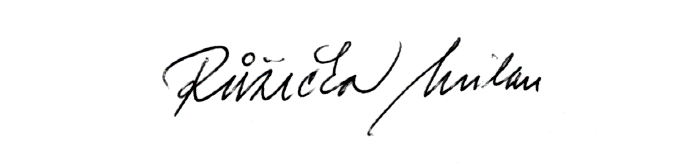 Růžička Milan